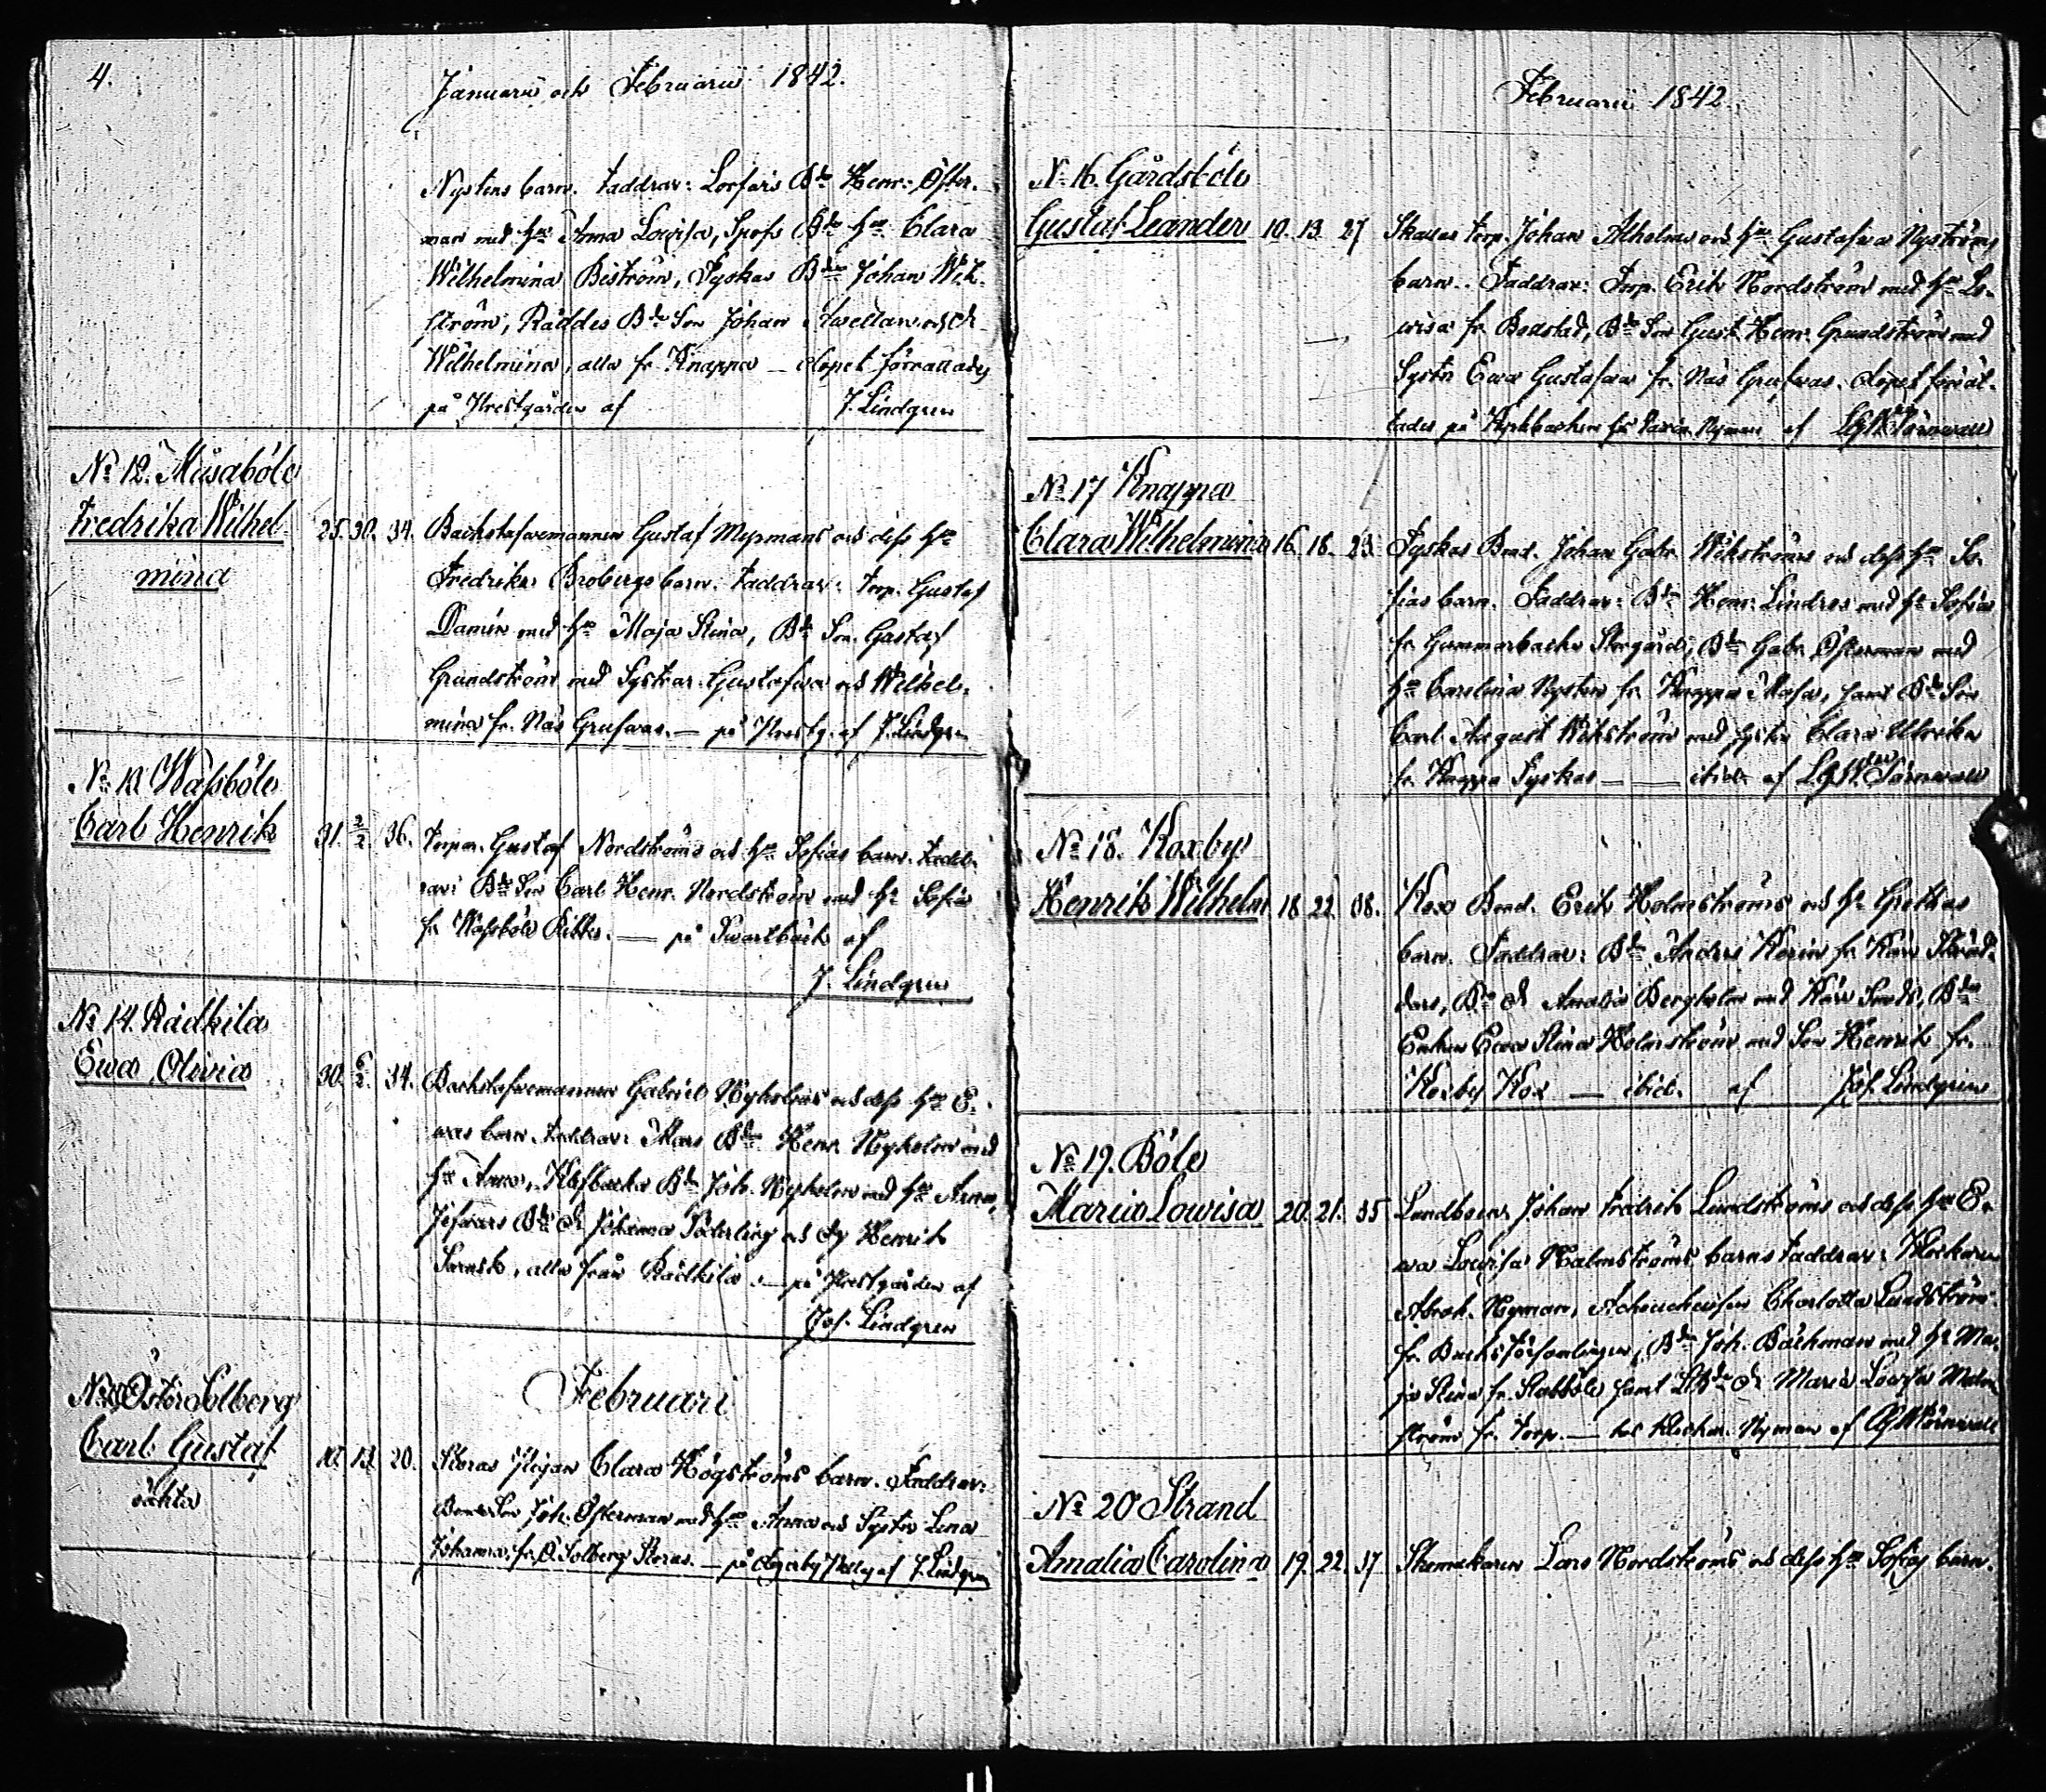 4.
Januarii och Februarii 1842.
Nystens barn. Faddrar: Lorfars Bdn Henr: Öster-
man med hu Anna Lovisa, Bdn hu Clara
Wilhelmina Biström, Tyskas Bdn Johan Wik-
ström, Räddes Bde Son Johan Awellan och
Wilhelmina, alla fr Knappa — dopet förrättades
på Prestgården af J. Lindgren
No 12. Misaböle
Fredrika Wilhel- 25. 30. 34. Backstufvemannen Gustaf Myrmans och dess hu
mina
Fredrikas Brobergs barn. Faddrar: Torp. Gustaf
Damén med hu Maja Stina, Bde Son Gustaf
Grundström med Systrar Gustafva och Wilhel-
mina fr. Näs Grufvas. — på Prestg. af J. Lindgren
No 13 Wafsböle
Carl Henrik 31. 2/2. 36. Torpar. Gustaf Nordströms och hu Sofias barn. Fadd-
rar: Bde Son Carl Henr. Nordström med hu Sofia
fr Wafsböle — på Svartbäck af
J. Lindgren
No 14. Rädkila
Ewa Olivia 30. 6/2. 34. Backstufvemannen Gabriel Nyholms och dess hu E-
was barn. Faddrar: Mars Bdn Henr. Nyholm med
hu Anna, Bdn Joh. Nyholm med hu Anna,
Bde dr Johanna Söderling och Dg Henrik
alla från Rädkila. — på Prestgården af
Jos. Lindgren
Februari
No Öster Solberg
Carl Gustaf 10. 13. 20. Storas Pigan Clara Högströms barn. Faddrar:
oäkta
Bonde Son Joh. Österman med hu Anna och Syster Lena
Johanna, fr Ö. Solberg Storas. — på af J. Lindgren
Februarii 1842.
No 16. Gårdsböle
Gustaf Leander 10. 13. 27 Skattas Torp. Johan Alholms och hu Gustafva Nyströms
barn. Faddrar: Torp. Erik Nordström med hu Lo-
visa fr. Bodstad, Bde Son Gust. Henr. Grundström med
Systr Ewa Gustafva fr. Näs Grufvas. Dopet förrät-
tades på Kyrkbacken Nyman af Törnwall
No 17 Knappa
Clara Wilhelmina 16. 18. 23. Tyskas Bond. Johan Gabr. Wikströms och dess hu So-
fias barn. Faddrar: Bdn Henr: Lindros med hu Sofia
fr Gammarbacka Storgårds, Bdn Gabr. Österman med
hu Carolina Nysten fr. Knappa samt Bde Son
Carl August Wikström med syster Clara Ulrika
fr. Knappa Tyskas — ibid. af Törnwall
No 18. Koxby
Henrik Wilhelm 18. 22. 38. Kox Bond. Erik Holmströms och hu Grettas
barn. Faddrar: Bdn Anders Korin fr. Skräd-
dars, Bde dr Amalia Bergholm Bdn
Enkan Ewa Stina Holmström med Son Henrik fr.
Koxby Kox — ibid. af Jos. Lindgren
No 19. Böle
Maria Lovisa 20. 21. 35 Landboen Johan Fredrik Lundströms och dess hu E-
wa Lovisa Malmströms barn. Faddrar: Klockaren
Abrah. Nyman, Charlotta Lundström
fr. Bdn Joh. Bäckman med hu Ma-
ja Stina fr. Stabböle samt dr Maria Lovisa Malm-
ström fr. Torp. — hos Klockar Nyman af Törnwall
No 20 Strand
Amalia Carolina 19. 22. 37 Skomakaren Lars Nordströms och dess hu Sofias barn.